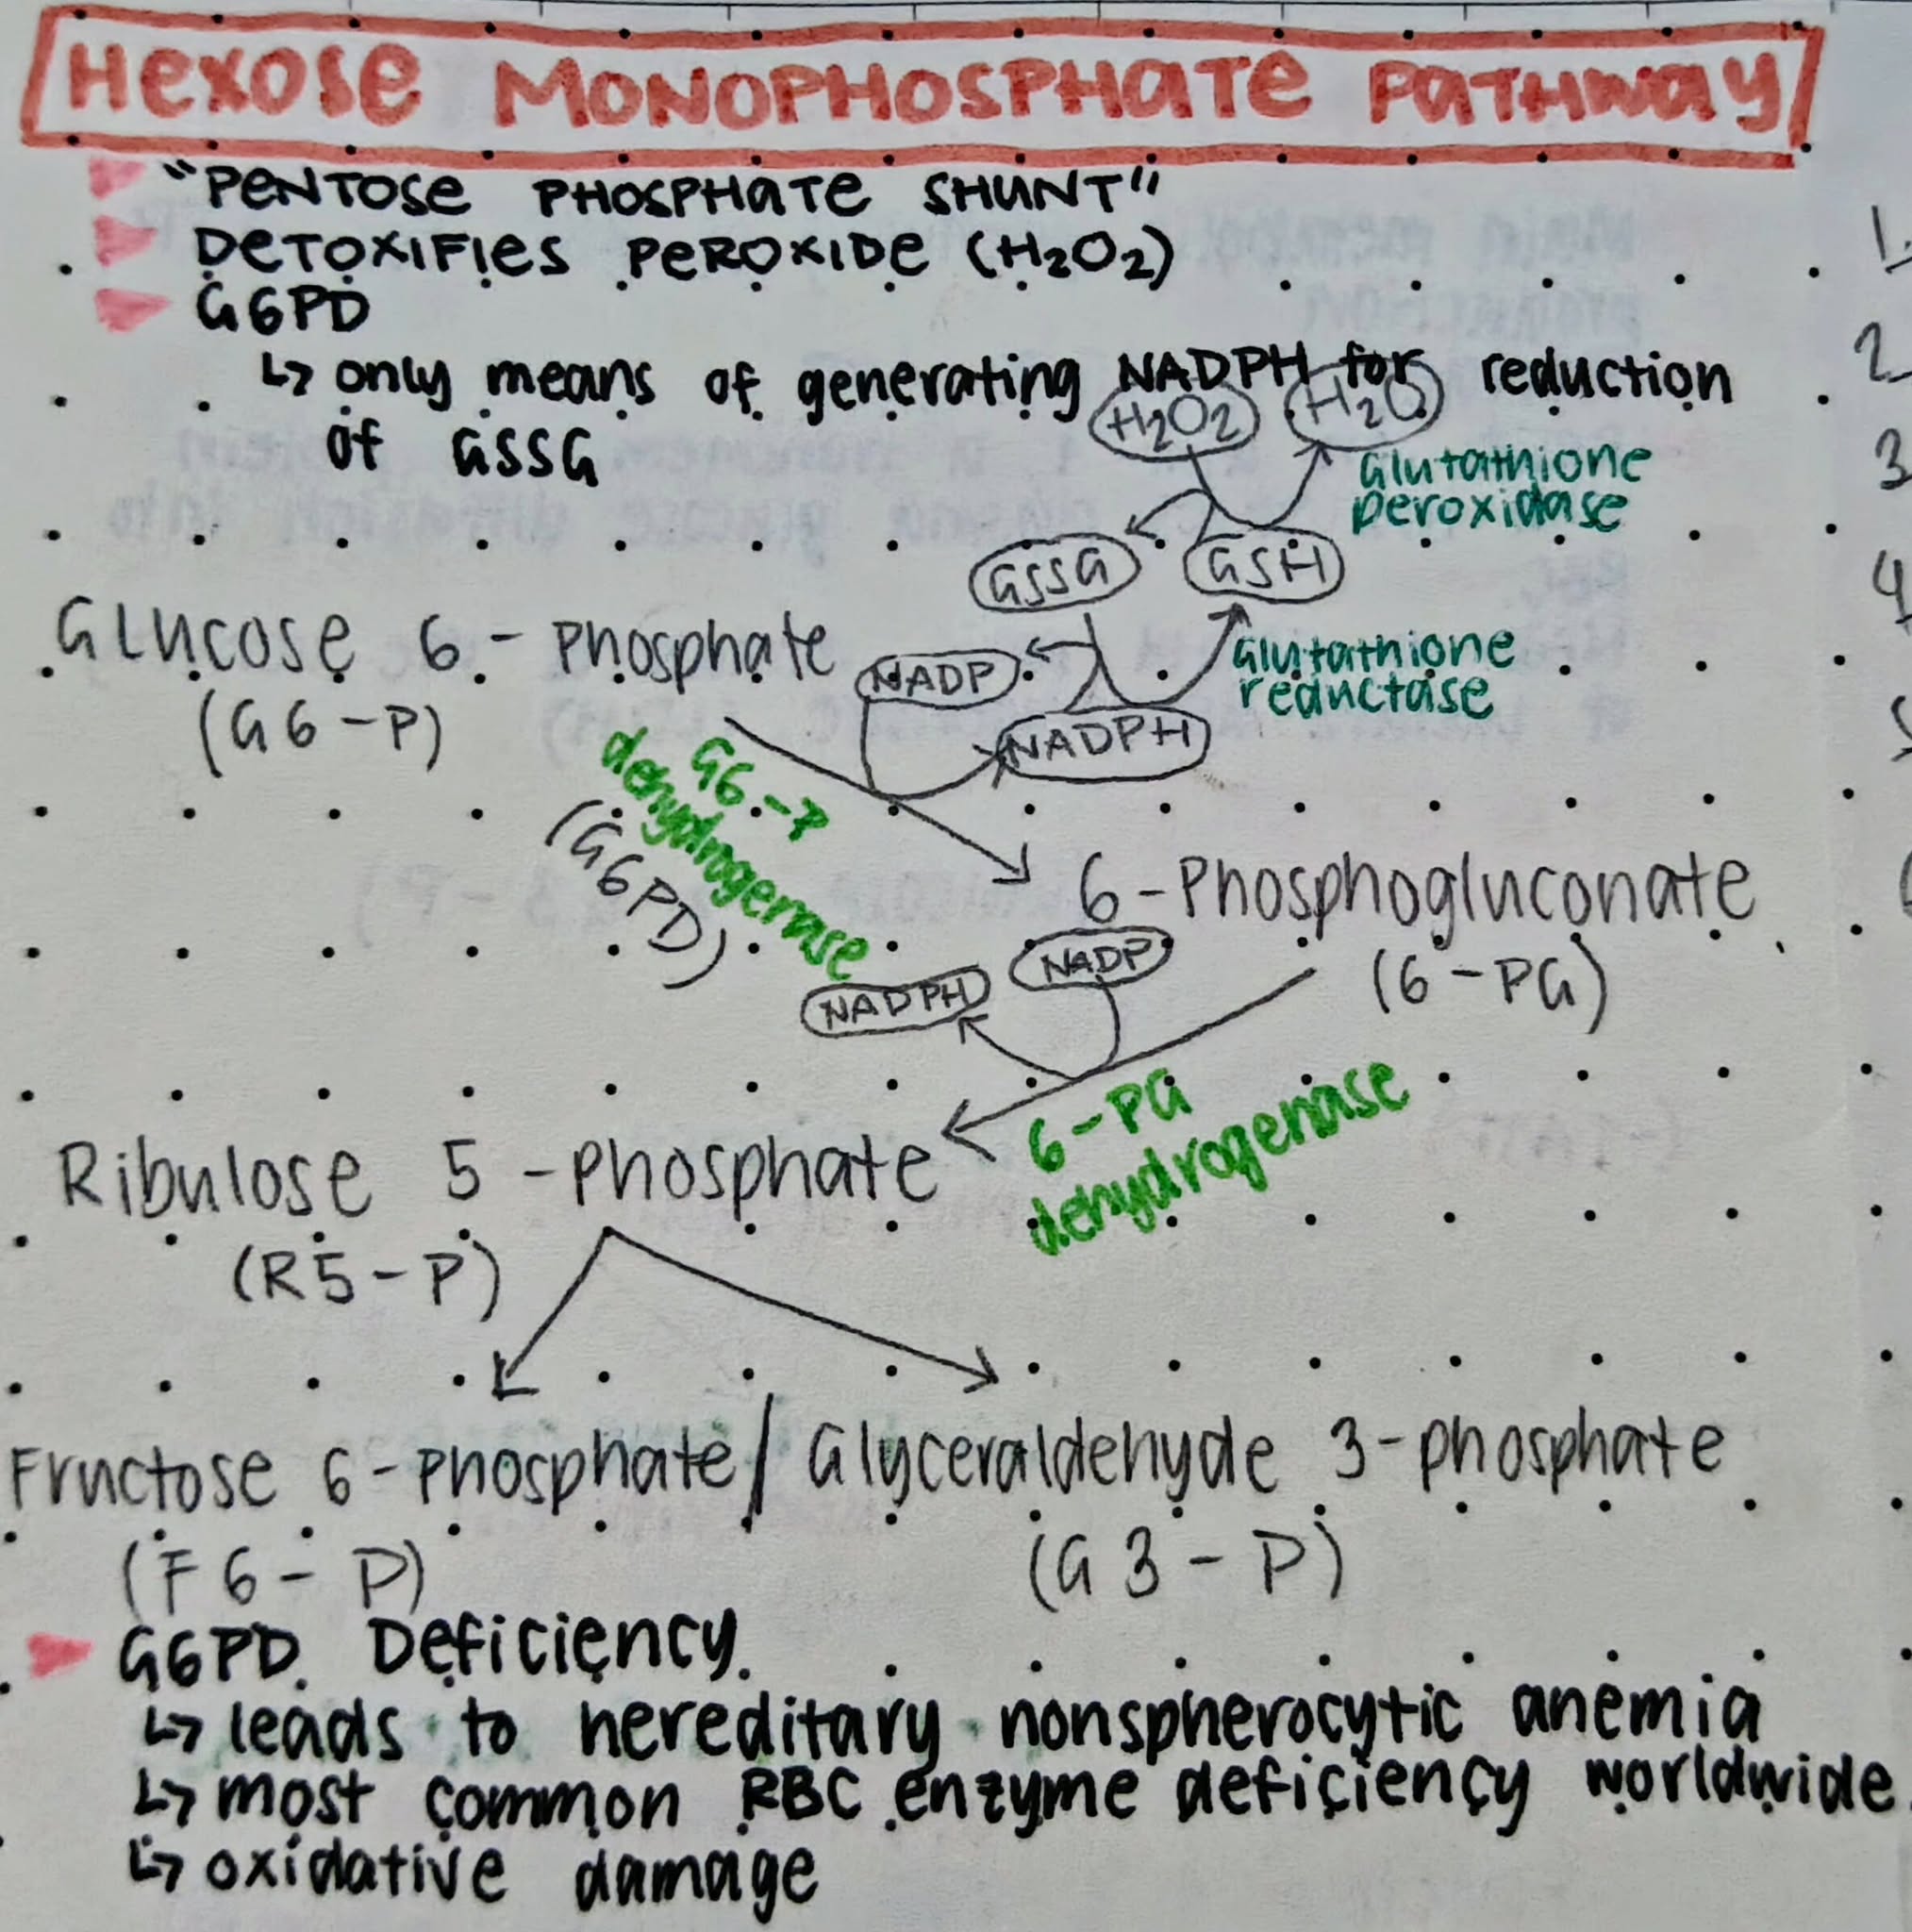 Hexose Monophosphate Pathway
"Pentose Phosphate Shunt"
Detoxifies Peroxide (H₂O₂)
G6PD
↳ only means of generating NADPH for reduction
of GSSG
H₂O₂ H₂O
Glutathione
peroxidase
GSSG GSH
Glucose 6-Phosphate
(G6-P)
NADP
Glutathione
reductase
NADPH
G6-P
dehydrogenase
(G6PD)
6-Phosphogluconate
(6-PG)
NADP
NADPH
6-PG
dehydrogenase
Ribulose 5-phosphate
(R5-P)
Fructose 6-phosphate / Glyceraldehyde 3-phosphate
(F6-P) (G3-P)
G6PD Deficiency
↳ leads to hereditary nonspherocytic anemia
↳ most common RBC enzyme deficiency worldwide
↳ oxidative damage
1.
2
3
4